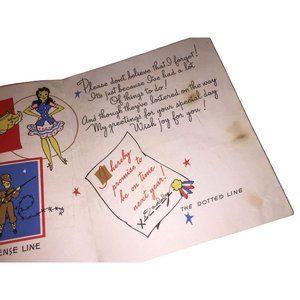 Please don't believe that I forgot!
It's just because I've had a lot
Of things to do!
And though they've loitered on the way
My greetings for your special day
Wish joy for you!
I hereby
promise to
be on time
next year!
THE DOTTED LINE
ENSE LINE